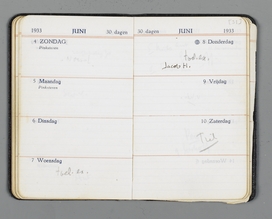 1933 JUNI 30 dagen
4 ZONDAG
Pinksteren
5 Maandag
Pinksteren
6 Dinsdag
7 Woensdag
30 dagen JUNI 1933
8 Donderdag
Jacob H.
9 Vrijdag
10 Zaterdag